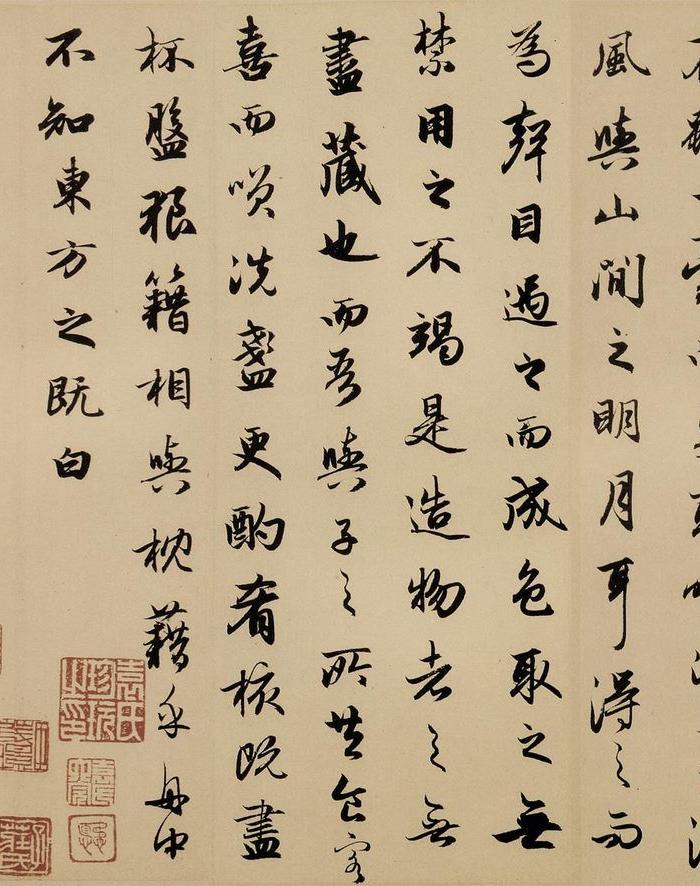 風與山間之明月耳得之而
為聲目遇之而成色取之無
禁用之不竭是造物者之無
盡藏也而吾與子之所共食客
喜而笑洗盞更酌肴核既盡
杯盤狼籍相與枕藉乎舟中
不知東方之既白